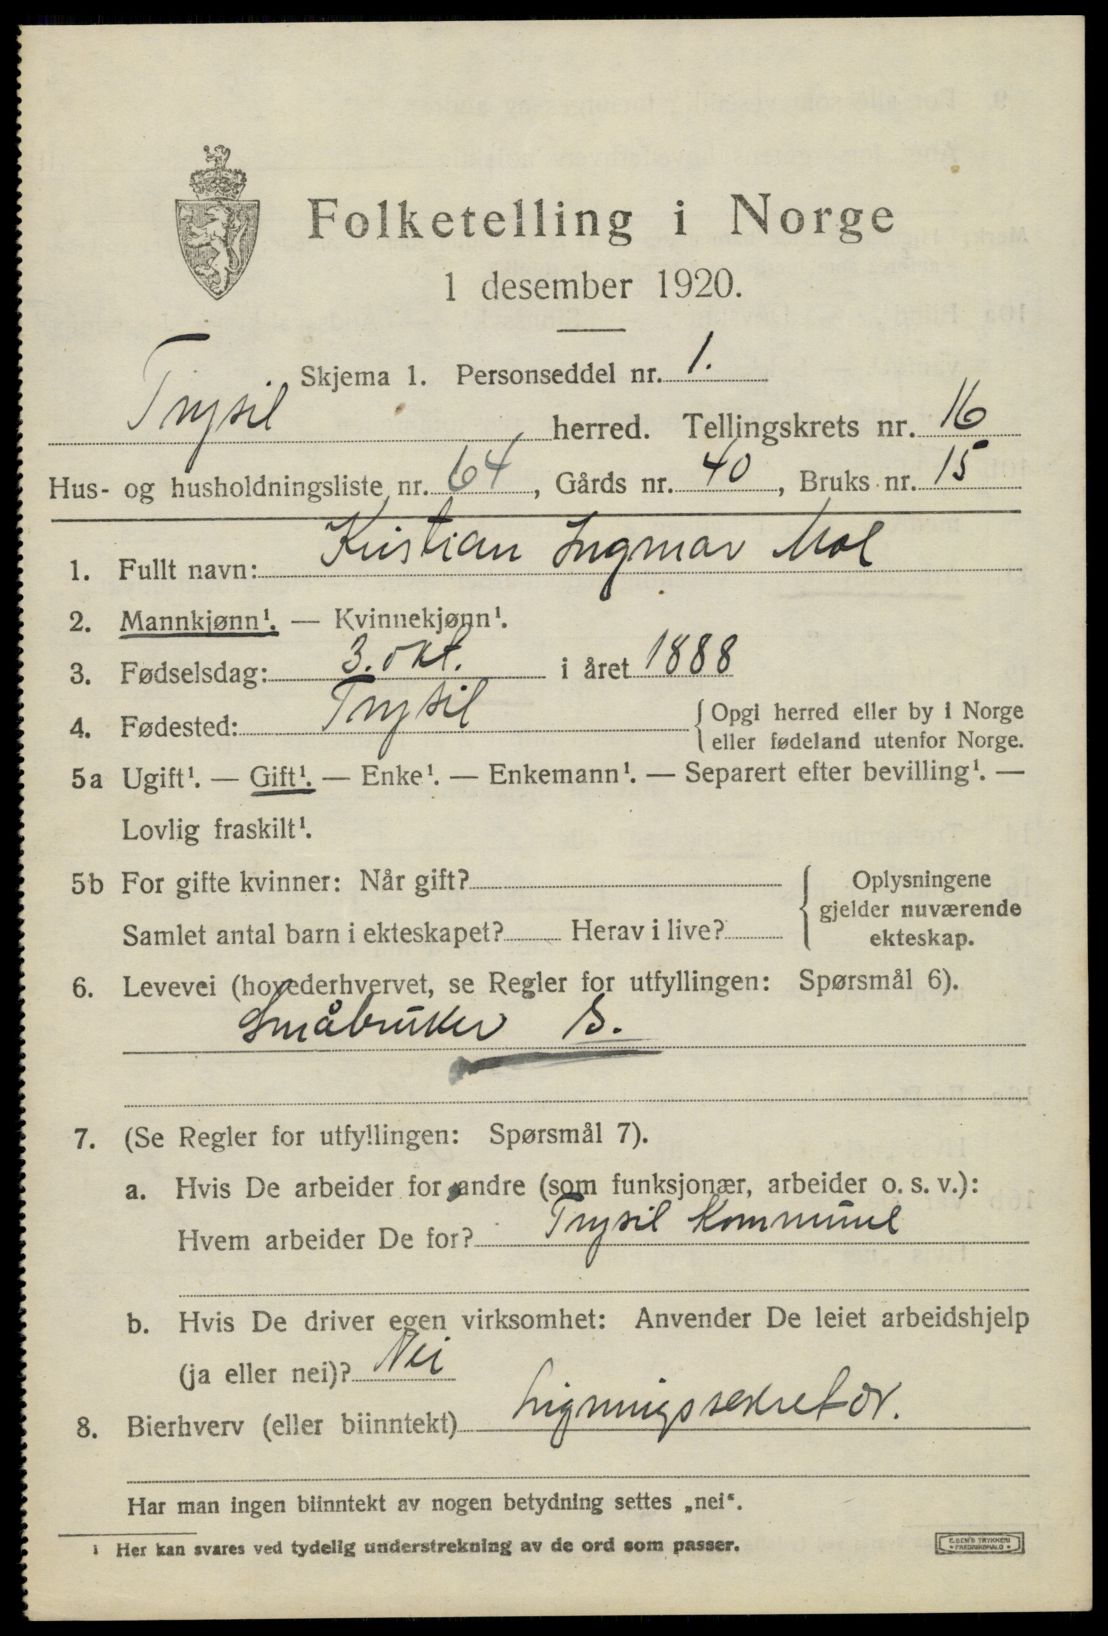 Folketelling i Norge
1 desember 1920.
Skjema 1. Personseddel nr. 1.
Trysil herred. Tellingskrets nr. 16
Hus- og husholdningsliste nr. 64, Gårds nr. 40, Bruks nr. 15
1. Fullt navn: Kristian Ingmar Moe
2. Mannkjønn¹. — Kvinnekjønn¹.
3. Fødselsdag: 3. okt. i året 1888
4. Fødested: Trysil { Opgi herred eller by i Norge
eller fødeland utenfor Norge.
5a Ugift¹. — Gift¹. — Enke¹. — Enkemann¹. — Separert efter bevilling¹. —
Lovlig fraskilt¹.
5b For gifte kvinner: Når gift? { Oplysningene
gjelder nuværende
Samlet antal barn i ekteskapet? Herav i live? ekteskap.
6. Levevei (hovederhvervet, se Regler for utfyllingen: Spørsmål 6).
Småbruker S.
7. (Se Regler for utfyllingen: Spørsmål 7).
a. Hvis De arbeider for andre (som funksjonær, arbeider o. s. v.):
Hvem arbeider De for? Trysil kommune
b. Hvis De driver egen virksomhet: Anvender De leiet arbeidshjelp
(ja eller nei)? Nei
8. Bierhverv (eller biinntekt) Ligningssekretær.
Har man ingen biinntekt av nogen betydning settes „nei“.
¹ Her kan svares ved tydelig understrekning av de ord som passer.